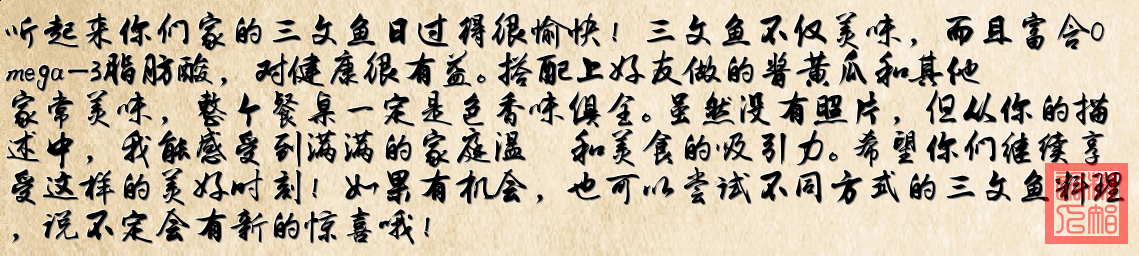 听起来你们家的三文鱼日过得很愉快！三文鱼不仅美味，而且富含O
mega-3脂肪酸，对健康很有益。搭配上好友做的酱黄瓜和其他
家常美味，整个餐桌一定是色香味俱全。虽然没有照片，但从你的描
述中，我能感受到满满的家庭温 和美食的吸引力。希望你们继续享
受这样的美好时刻！如果有机会，也可以尝试不同方式的三文鱼料理
，说不定会有新的惊喜哦！